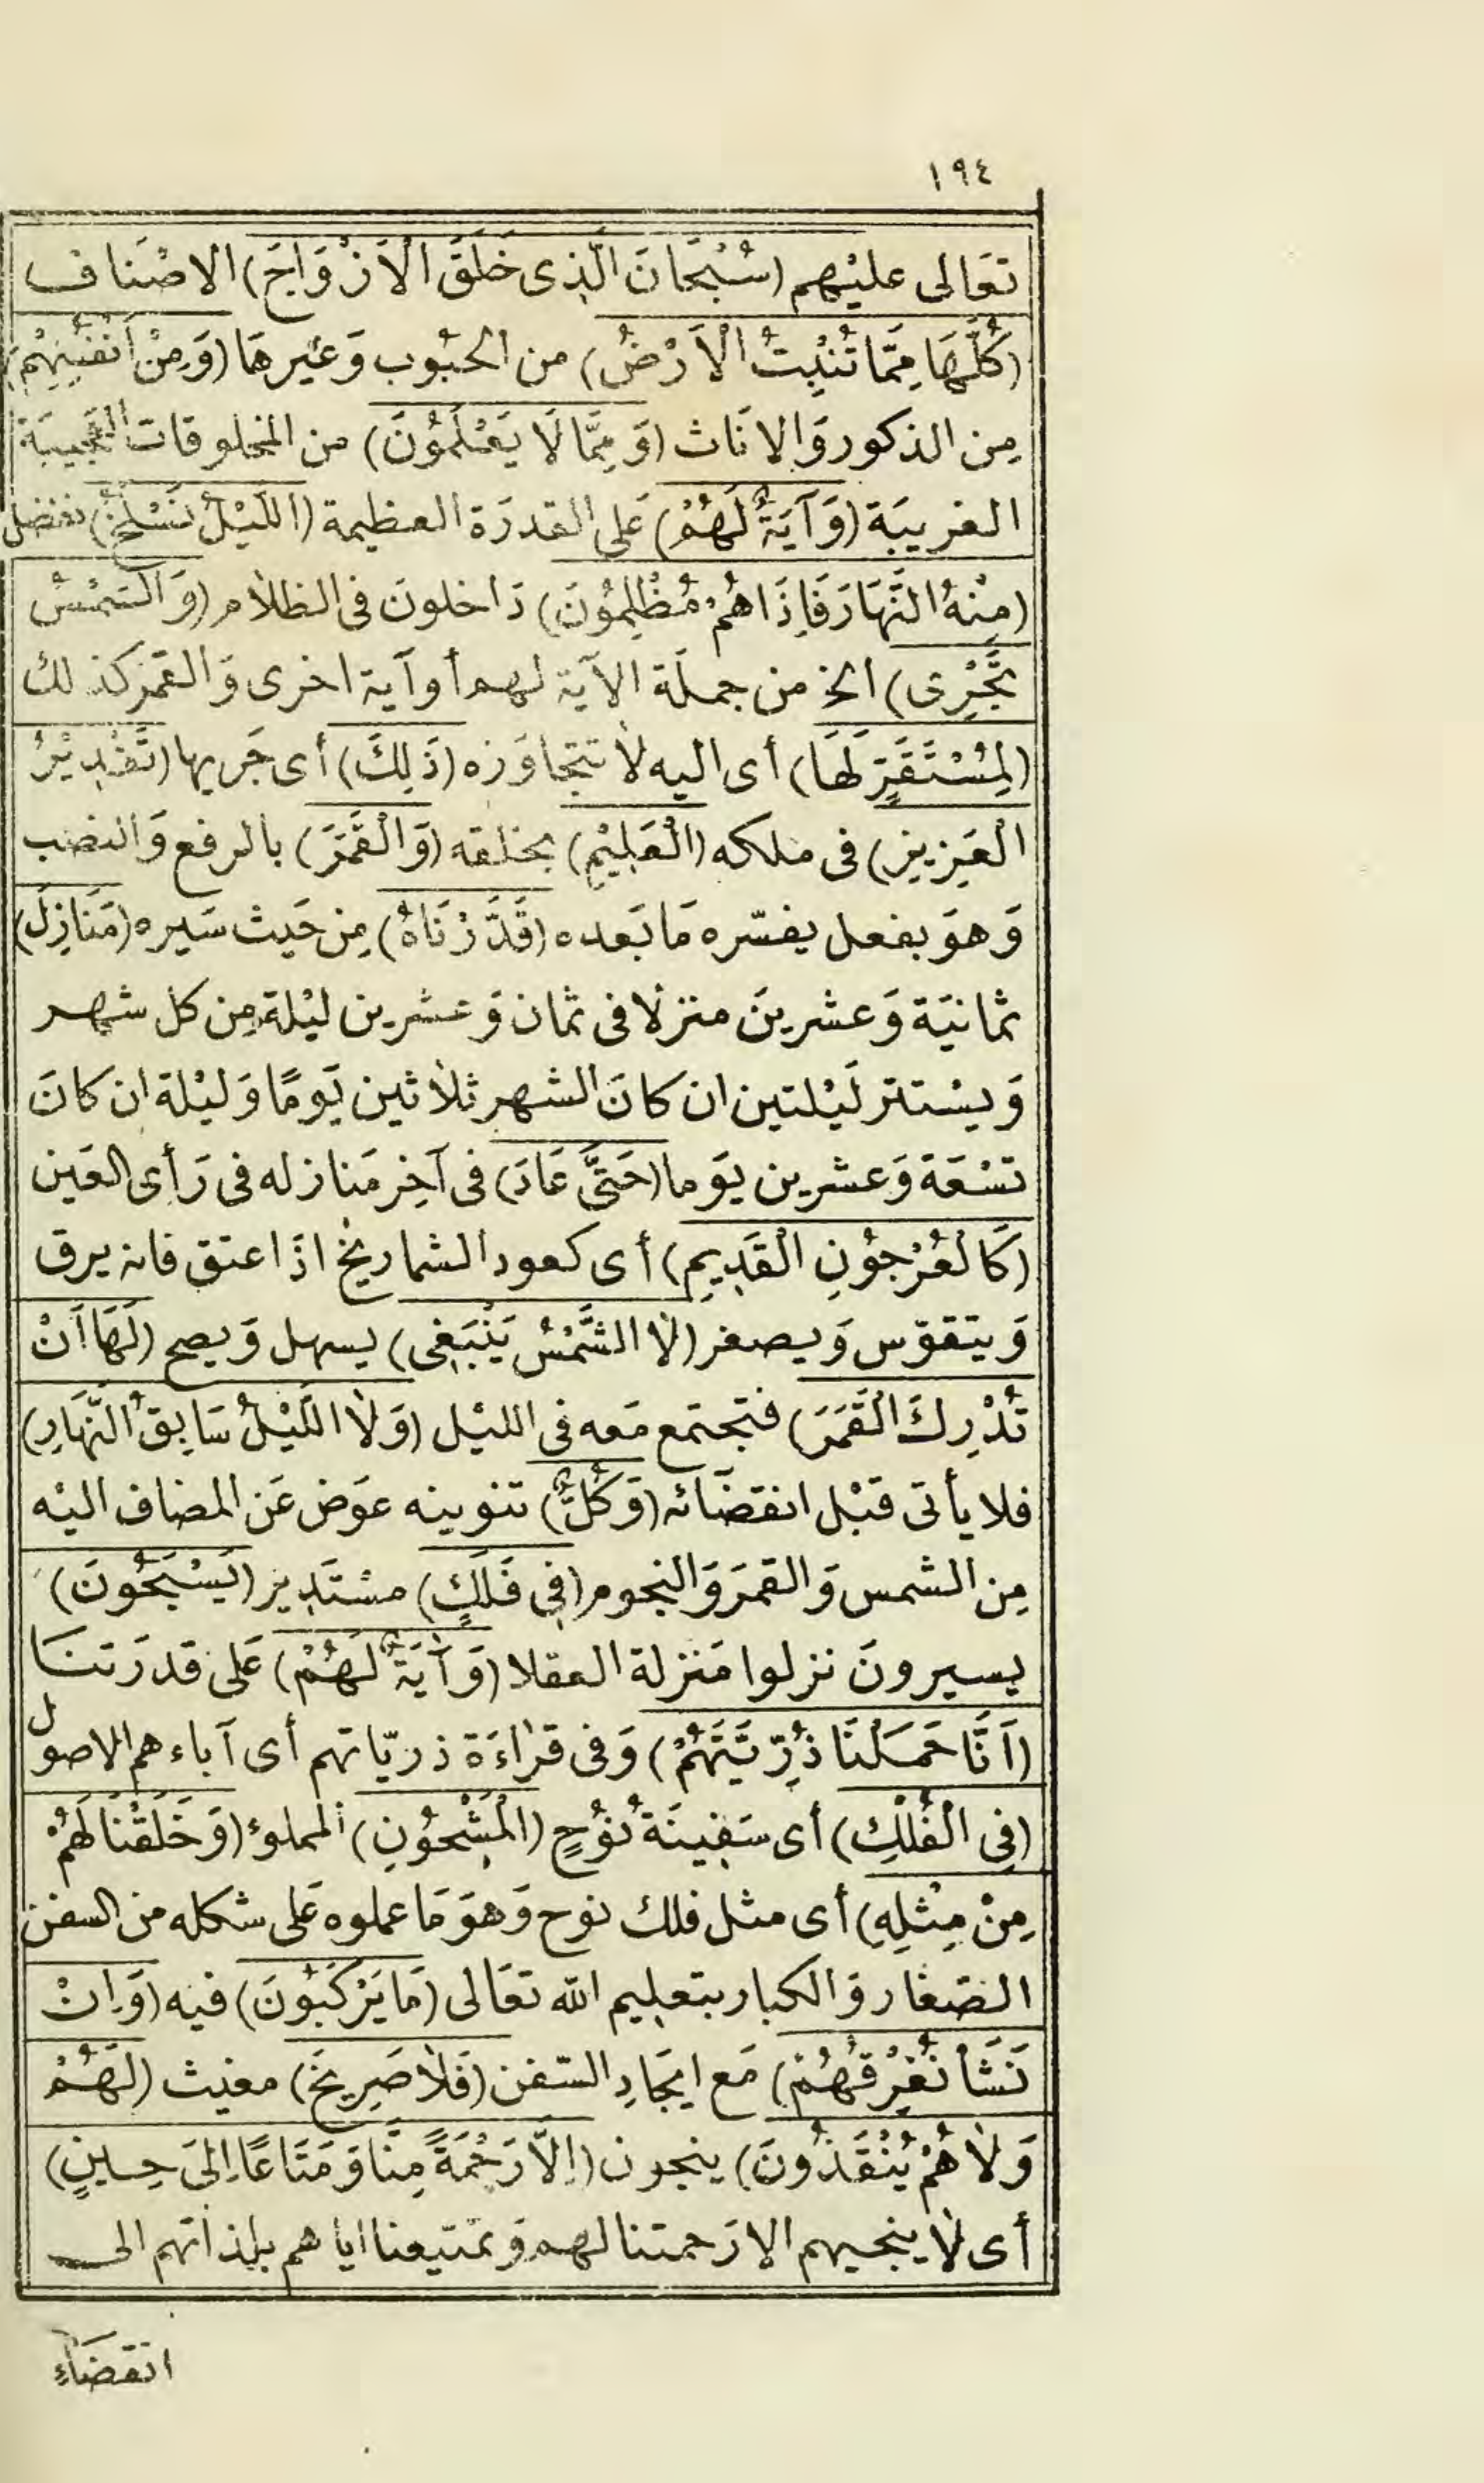 ١٩٤
تعَالى عليْهم (سُبْحَانَ الَّذِى خَلَقَ الْاَزْوَاجَ) الاصْنَاف
(كُلَّهَا مِمَّا تُنْبِتُ الْاَرْضُ) من الحبُوب وَغيْرهَا (وَمِنْ اَنْفُسِهِمْ)
مِن الذكور وَالاناث (وَمِمَّا لَا يَعْلَمُونَ) من المخلوقات العَجيبَة
الغريبَة (وَآيَةٌ لَهُمُ) عَلى القدرَة العظيمة (اللَّيْلُ نَسْلَخُ) نفصل
(مِنْهُ النَّهَارَ فَاِذَا هُمْ مُظْلِمُونَ) دَاخلونَ فى الظلام (وَالشَّمْسُ
تَجْرِى) الخ من جملَة الآيَة لهم أو آية اخرى وَالقمَر كذلك
(لِمُسْتَقَرٍّ لَهَا) أى اليه لا تتجاوَزه (ذَلِكَ) أى جَريها (تَقْدِيْرُ
الْعَزِيزِ) فى ملكه (الْعَلِيْمِ) بخلقه (وَالْقَمَرَ) بالرفع وَالنصب
وَهوَ بفعل يفسّره مَا بَعده (قَدَّرْنَاهُ) مِن حَيث سَيره (مَنَازِلَ)
ثمانيَة وَعشرينَ منزلا فى ثمان وَعشرين ليْلة مِن كل شهر
وَيسْتتر لَيْلتين ان كانَ الشهر ثلاثين يَومًا وَليْلة ان كانَ
تسْعَة وَعشرين يوَما (حَتَّى عَادَ) فى آخِر مَنازله فى رَأى العَين
(كَالْعُرْجُوْنِ الْقَدِيمِ) أى كعود الشماريخ اذَا عتق فانه يرق
وَيتقوّس وَيصغر (لا الشَّمْسُ يَنْبَغِى) يسهل وَيصح (لَهَا اَنْ
تُدْرِكَ الْقَمَرَ) فتجتمع مَعه فى الليْل (وَلا اللَّيْلُ سَابِقُ النَّهَارِ)
فلا يأتى قبْل انقضَائه (وَكُلٌّ) تنوينه عوَض عَن المضاف اليْه
مِن الشمس وَالقمَر وَالنجوم (فِى فَلَكٍ) مسْتَدِير (يَسْبَحُونَ)
يسيرونَ نزلوا مَنزلة العقلا (وَآيَةٌ لَهُمْ) عَلى قدرَتنَا
(اَنَّا حَمَلْنَا ذُرِّيَّتَهُمْ) وَفى قرَاءَة ذريّاتهم أى آباءهم الاصول
(فِى الْفُلْكِ) أى سَفِينَة نُوْحٍ (الْمَشْحُوْنِ) المملوء (وَخَلَقْنَا لَهُمْ
مِنْ مِثْلِهِ) أى مثل فلك نوح وَهوَ مَا عملوه عَلى شكله من السفن
الصّغار وَالكبار بتعلِيم الله تعَالى (مَا يَرْكَبُوْنَ) فيه (وَاِنْ
نَشَأْ نُغْرِقْهُمْ) مَع ايجَادِ السّفن (فَلا صَرِيخَ) مغيث (لَهُمْ
وَلا هُمْ يُنْقَذُونَ) ينجون (اِلاَّ رَحْمَةً مِنَّا وَمَتَاعًا اِلَى حِينٍ)
أى لا ينجيهم الا رَحمتنا لهم وَتمتيعنا اياهم بلذاتهم الى
انقضَاءِ